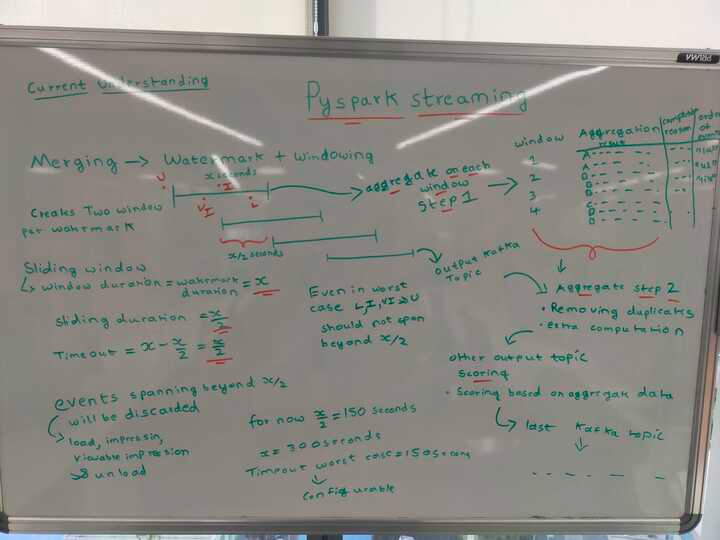 Current Understanding
Pyspark streaming
Merging → Watermark + Windowing
x seconds
U
I
VI
L
Creates Two window
per watermark
x/2 seconds
→ aggregate on each
window
step 1
window
Aggregation
result
complete
reason
order
of
1
2
3
4
A
A
B
B
B
C
D
D
Sliding window
↳ window duration = watermark = x
duration
sliding duration = x/2
Timeout = x - x/2 = x/2
Even in worst
case L,I,VI &U
should not span
beyond x/2
Output Kafka
Topic
Aggregate step 2
• Removing duplicates
• extra computation
other output topic
scoring
• Scoring based on aggregate data
↳ last Kafka topic
events spanning beyond x/2
will be discarded
load, impression,
viewable impression
& unload
for now x/2 = 150 seconds
x = 300 seconds
Timeout worst case = 150 seconds
Configurable